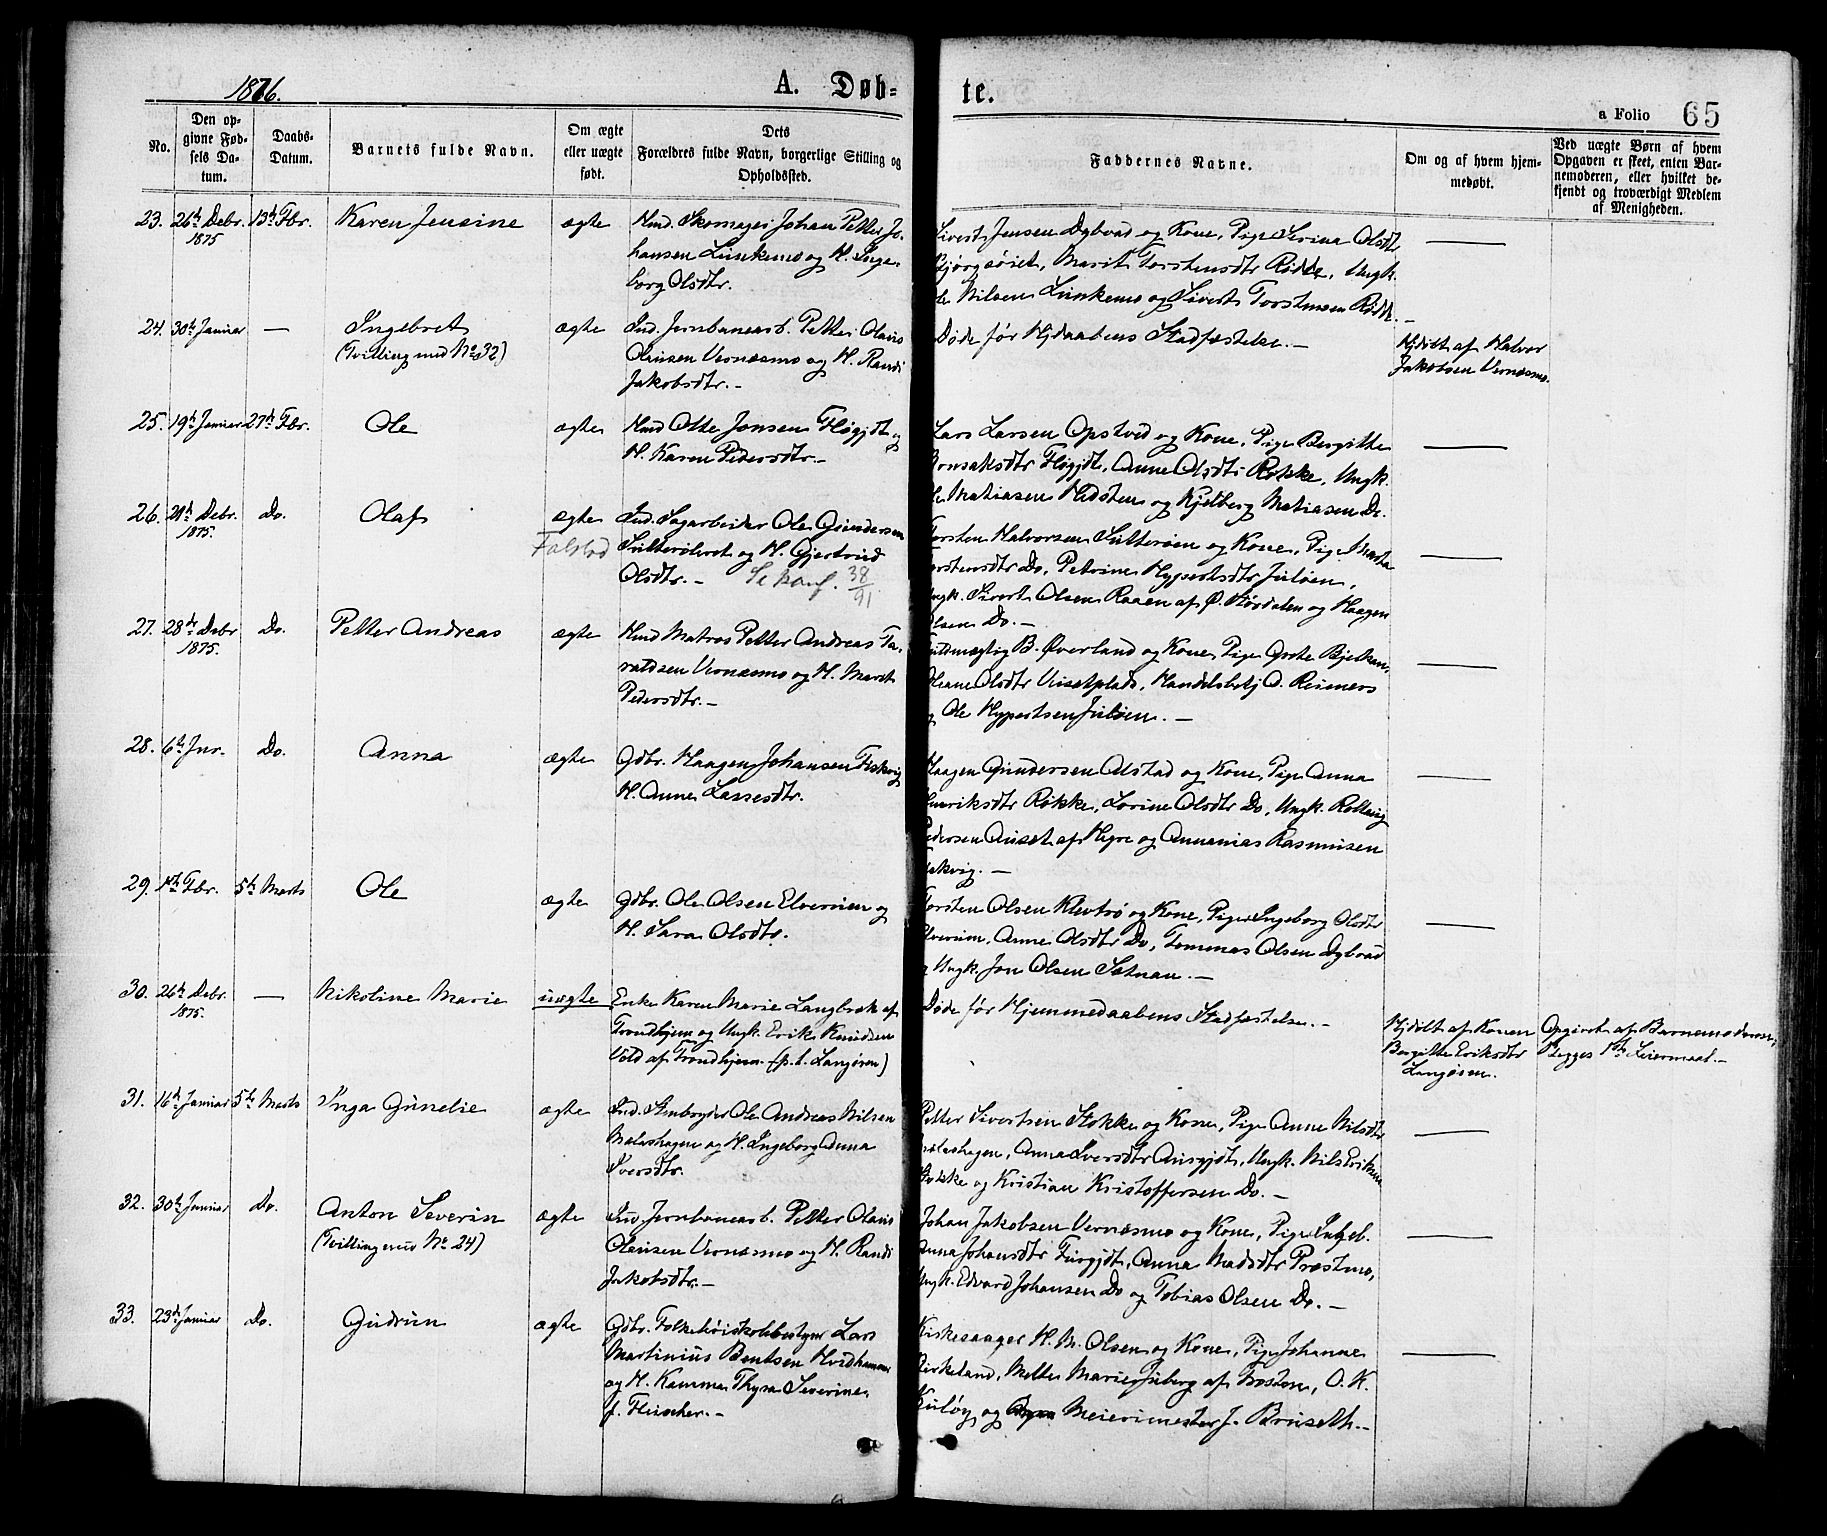 1876.
A. Døb-
te.
a Folio 65
No.
Den op-
givne Fød-
sels Da-
tum.
Daabs-
Datum.
Barnets fulde Navn.
Om ægte
eller uægte
født.
Dets
Forældres fulde Navn, borgerlige Stilling og
Opholdssted.
Faddernes Navne.
Om og af hvem hjem-
medøbt.
Ved uægte Børn af hvem
Opgaven er skeet, enten Bar-
nemoderen, eller hvilket be-
kjendt og troværdigt Medlem
af Menigheden.
23. 26de Debr. 1875 13de Fbr. Karen Jensine ægte
Skomager Johan Petter Jo-
hansen Linkemo og H. Inge-
borg Olsdtr.
Sivert Jensen Dybvad og Kone, Pige Serina Olsdtr
Marit Torstensdtr Rødde, Ungk.
Nilsen Linkemo og Sivert Torstensen Rødde.
24. 30te Januar — Ingebret ægte
(Tvilling med No 32)
Ind. Jernbanearb. Petter Olaus
Olausen Vernæsmo og H. Randi
Jakobsdtr. -
Døde før Hjdaabens Stadfæstelse. -
Hjdøbt af Halvor
Jakobsen Vernæsmo.
25. 19de Januar 27de Fbr. Ole ægte
Otte Jonsen Fløgjdt og
H. Karen Pedersdtr. -
Lars Larsen Opstved og Kone, Pige Bergitte
Fløgjdt, Anne Olsdtr Røkke, Ungk.
Matiasen Hedsten og Kjelberg Matiasen Do.
26. 21de Debr. 1875. Do. Olaf ægte
Falstad
Ind. Sagarbeider Ole Gundersen
og H. Gjertrud
Olsdtr. -
38
91
Torsten Halvorsen Sutterøen og Kone, Pige Marta
Torstensdtr Do, Petrine Hypertsdtr Juløen,
Ungk. Sivert Olsen Raaen af Ø. Størdalen og Haagen
Olsen Do. -
27. 28de Debr 1875. Do. Petter Andreas ægte
Matros Petter Andreas Ta-
raldsen Vernæsmo og H. Marit
Pedersdtr. -
B. Øverland og Kone, Pige
Olsdtr Handelsbetj O. Reimers
og Ole Hypertsen Juløen. -
28. 6te Jnr. Do. Anna ægte
Gdbr. Haagen Johansen Fiskvig
H. Anne Lassesdtr.
Haagen Gundersen Alstad og Kone, Pige Anna
Henriksdtr Røkke, Lorine Olsdtr Do, Ungk.
Pedersen Auset af Hegre og Annanias Rasmusen
Fiskvig. -
29. 1ste Fbr. 5te Marts Ole ægte
Gdbr. Ole Olsen Elverum og
H. Sara Olsdtr.
Torsten Olsen Klevtrø og Kone, Piger Ingeborg Olsdtr
Elverum, Anne Olsdtr Do, Tommas Olsen Dybvad
og Ungk. Jon Olsen Sætnan. -
30. 26de Debr. 1875. — Nikoline Marie uægte
Enke Karen Marie Langbrek af
Trondhjem og Ungk. Erik Knudsen
Vold af Trondhjem (p. t. Langøren)
Døde før Hjemmedaabens Stadfæstelse. -
Hjdøbt af Konen
Bergitte Eriksdtr
Langøren.
Opgivet af Barnemoderen;
Begges 1ste Leiermaal. -
31. 16de Januar 5te Marts Inga Gunelie ægte
Ind. Stenbryder Ole Andreas Nilsen
Mælenhagen og H. Ingeborg Anna
Iversdtr.
Petter Sivertsen Stokke og Kone, Pige Anne Nilsdtr
Mælenhagen, Anna Iversdtr Ausgjdt, Ungk. Nils Eriksen
Stokke og Kristian Kristoffersen Do. -
32. 30te Januar Do. Anton Severin ægte
(Tvilling med No 24)
Ind. Jernbanearb. Petter Olaus
Olausen Vernæsmo og H. Randi
Jakobsdtr. -
Johan Jakobsen Vernæsmo og Kone, Pige Ingeb.
Anna Johansdtr Anna Madsdtr Præstmo,
Ungk. Edvard Johansen Do og Tobias Olsen Do. -
33. 23de Januar Do. Gudrun ægte
Gdbr. Folkehøiskolebestyrer Lars
Martinius Bentsen Hvidhammer
og H. Kamma Thyra Severine
f. Fleischer. -
Kirkesanger H. M. Olsen og Kone, Pige Johanne
Birkeland, Mette Marie af O. K.
Kuløy og Meierimester J. Bruseth. -